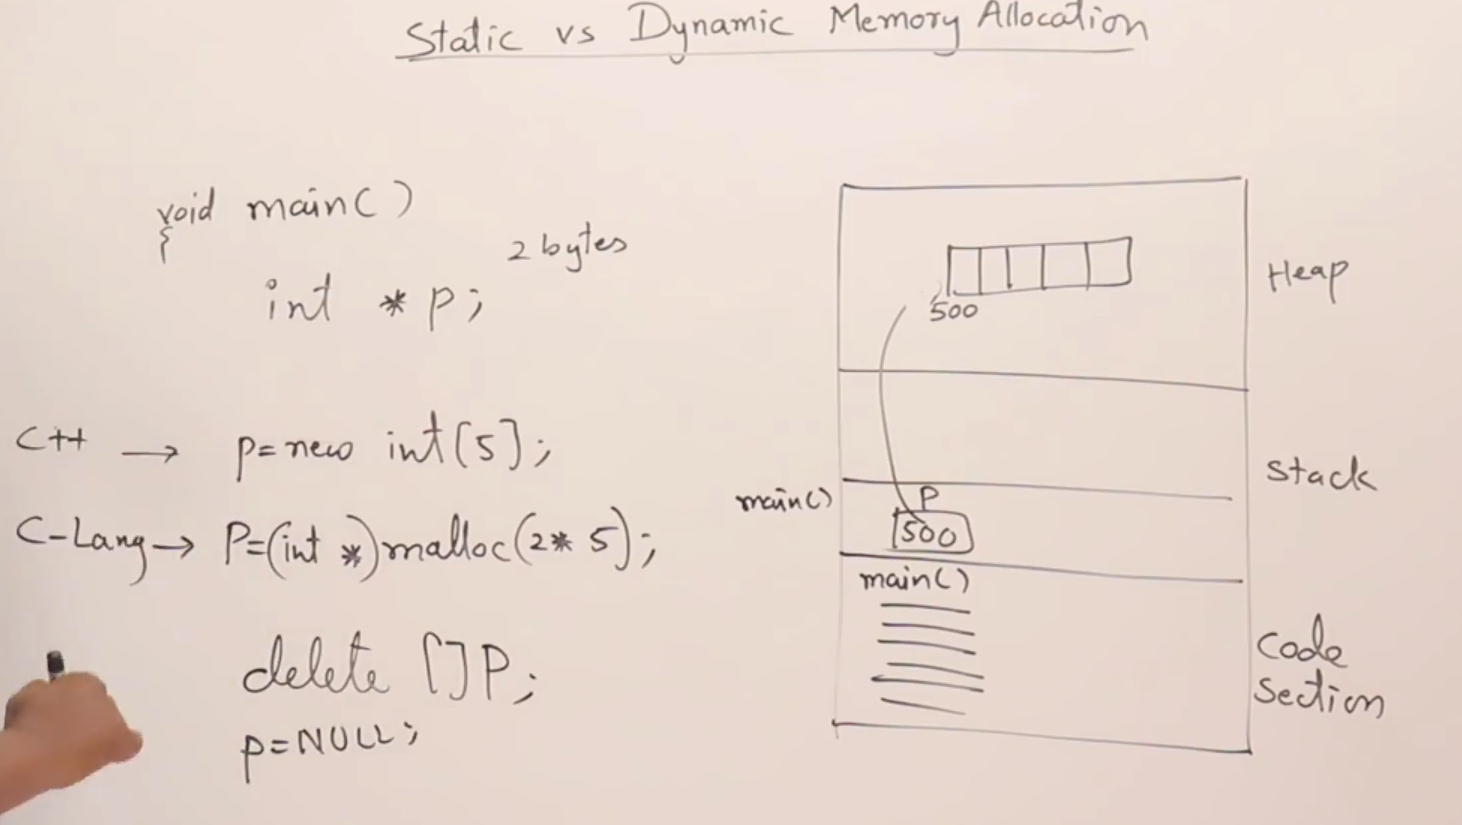 Static vs Dynamic Memory Allocation
void main()
{
2 bytes
int * p;
C++ → p=new int[5];
C-Lang → P=(int *)malloc(2* 5);
delete []P;
p=NULL;
500
Heap
Stack
main()
P
500
main()
Code
Section